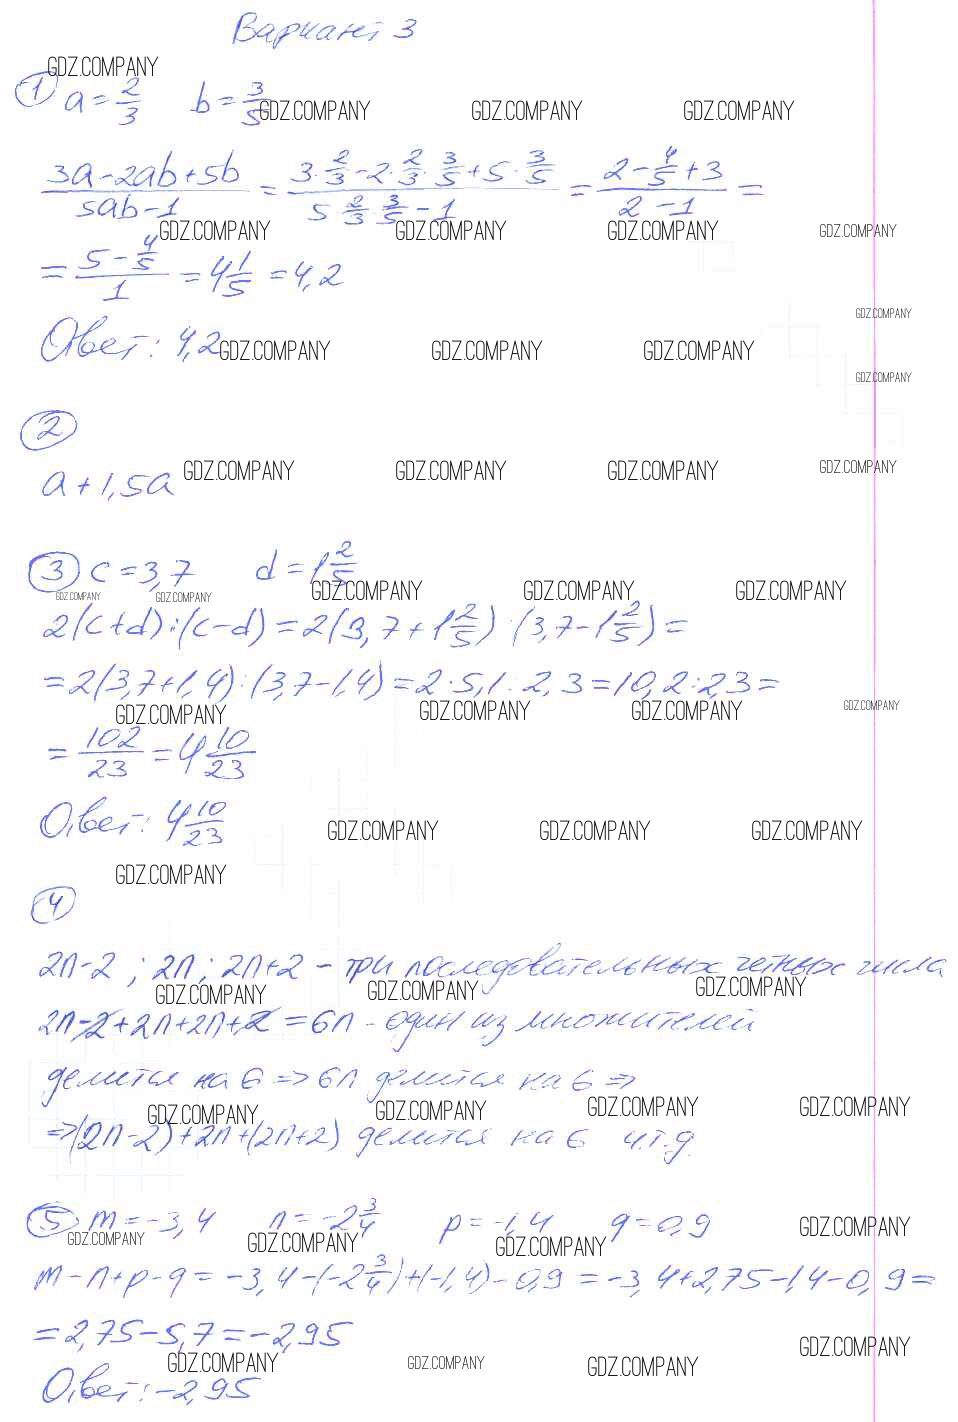 Вариант 3
GDZ.COMPANY
① a = 2/3 b = 3/5 GDZ.COMPANY GDZ.COMPANY GDZ.COMPANY
(3a - 2ab + 5b)/(5ab - 1) = (3 · 2/3 - 2 · 2/3 · 3/5 + 5 · 3/5)/(5 · 2/3 · 3/5 - 1) = (2 - 4/5 + 3)/(2 - 1) =
GDZ.COMPANY GDZ.COMPANY GDZ.COMPANY GDZ.COMPANY
= (5 - 4/5)/1 = 4 1/5 = 4,2
GDZ.COMPANY
Ответ: 4,2 GDZ.COMPANY GDZ.COMPANY GDZ.COMPANY
GDZ.COMPANY
②
a + 1,5a GDZ.COMPANY GDZ.COMPANY GDZ.COMPANY GDZ.COMPANY
③ c = 3,7 d = 1 2/5
GDZ.COMPANY GDZ.COMPANY GDZ.COMPANY GDZ.COMPANY GDZ.COMPANY
2(c+d):(c-d) = 2(3,7 + 1 2/5) : (3,7 - 1 2/5) =
= 2(3,7+1,4):(3,7-1,4) = 2 · 5,1 : 2,3 = 10,2:2,3 =
GDZ.COMPANY GDZ.COMPANY GDZ.COMPANY GDZ.COMPANY
= 102/23 = 4 10/23
Ответ: 4 10/23 GDZ.COMPANY GDZ.COMPANY GDZ.COMPANY
GDZ.COMPANY
④
2n-2 ; 2n ; 2n+2 - три последовательных четных числа
GDZ.COMPANY GDZ.COMPANY GDZ.COMPANY
2n-2+2n+2n+2 = 6n - один из множителей
делится на 6 => 6n делится на 6 =>
GDZ.COMPANY GDZ.COMPANY GDZ.COMPANY GDZ.COMPANY
=> (2n-2)+2n+(2n+2) делится на 6 ч.т.д.
⑤ m = -3,4 n = -2 3/4 p = -1,4 q = 0,9 GDZ.COMPANY
GDZ.COMPANY GDZ.COMPANY GDZ.COMPANY
m-n+p-q = -3,4-(-2 3/4)+(-1,4)-0,9 = -3,4+2,75-1,4-0,9 =
= 2,75-5,7 = -2,95 GDZ.COMPANY
GDZ.COMPANY GDZ.COMPANY GDZ.COMPANY
Ответ: -2,95